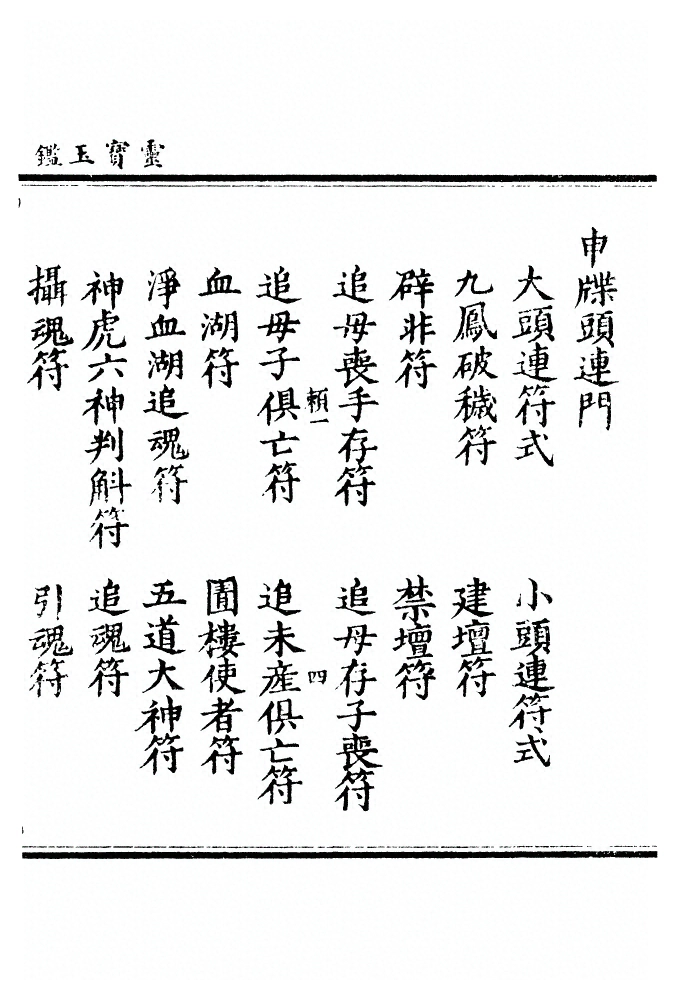 靈寶玉鑑
申牒頭連門
大頭連符式　小頭連符式
九鳳破穢符　建壇符
辟非符　禁壇符
追母喪手存符　追母存子喪符
頼一　四
追母子俱亡符　追未產俱亡符
血湖符　圊樓使者符
淨血湖追魂符　五道大神符
神虎六神判斛符　追魂符
攝魂符　引魂符